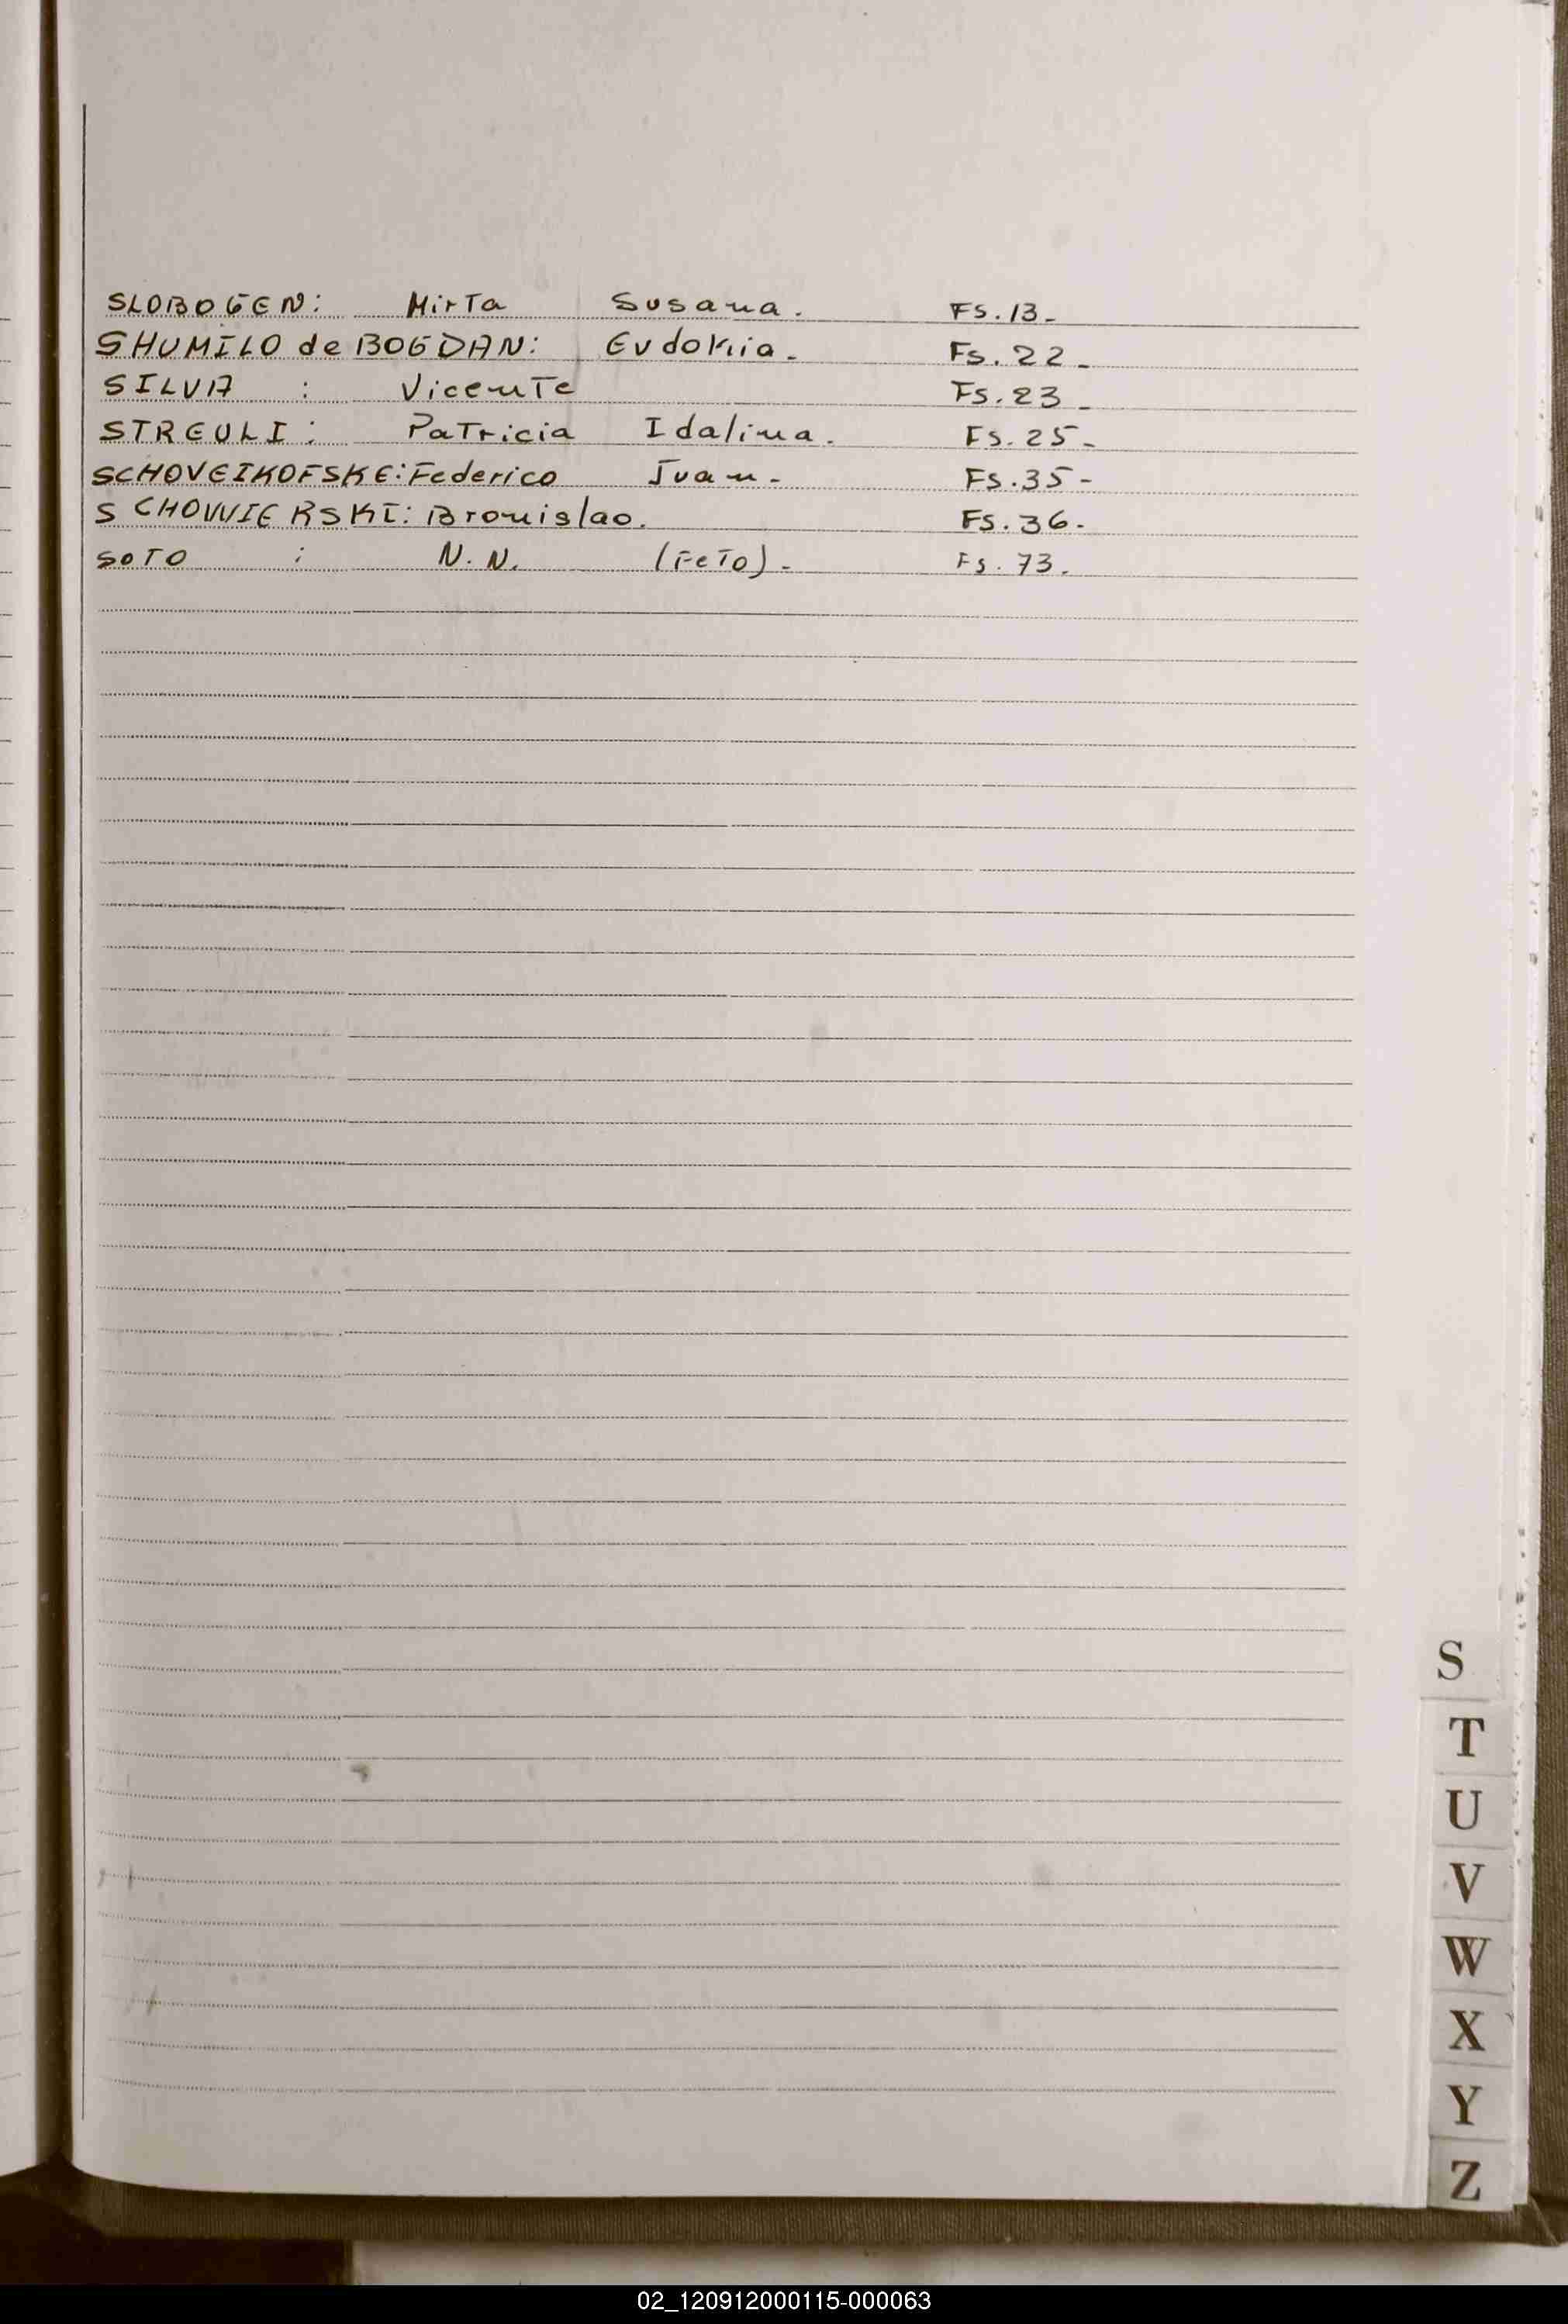 SLOBOGEN: Mirta Susana. Fs. 13-
SHUMILO de BOGDAN: Evdokiia. Fs. 22-
SILVA : Vicente Fs. 23-
STREULI: Patricia Idalina. Fs. 25-
SCHOVEIKOFSKE: Federico Juan- Fs. 35-
SCHOWIERSKI: Bronislao. Fs. 36.
SOTO : N.N. (FeTo)- Fs. 73.
S
T
U
V
W
X
Y
Z
02_120912000115-000063